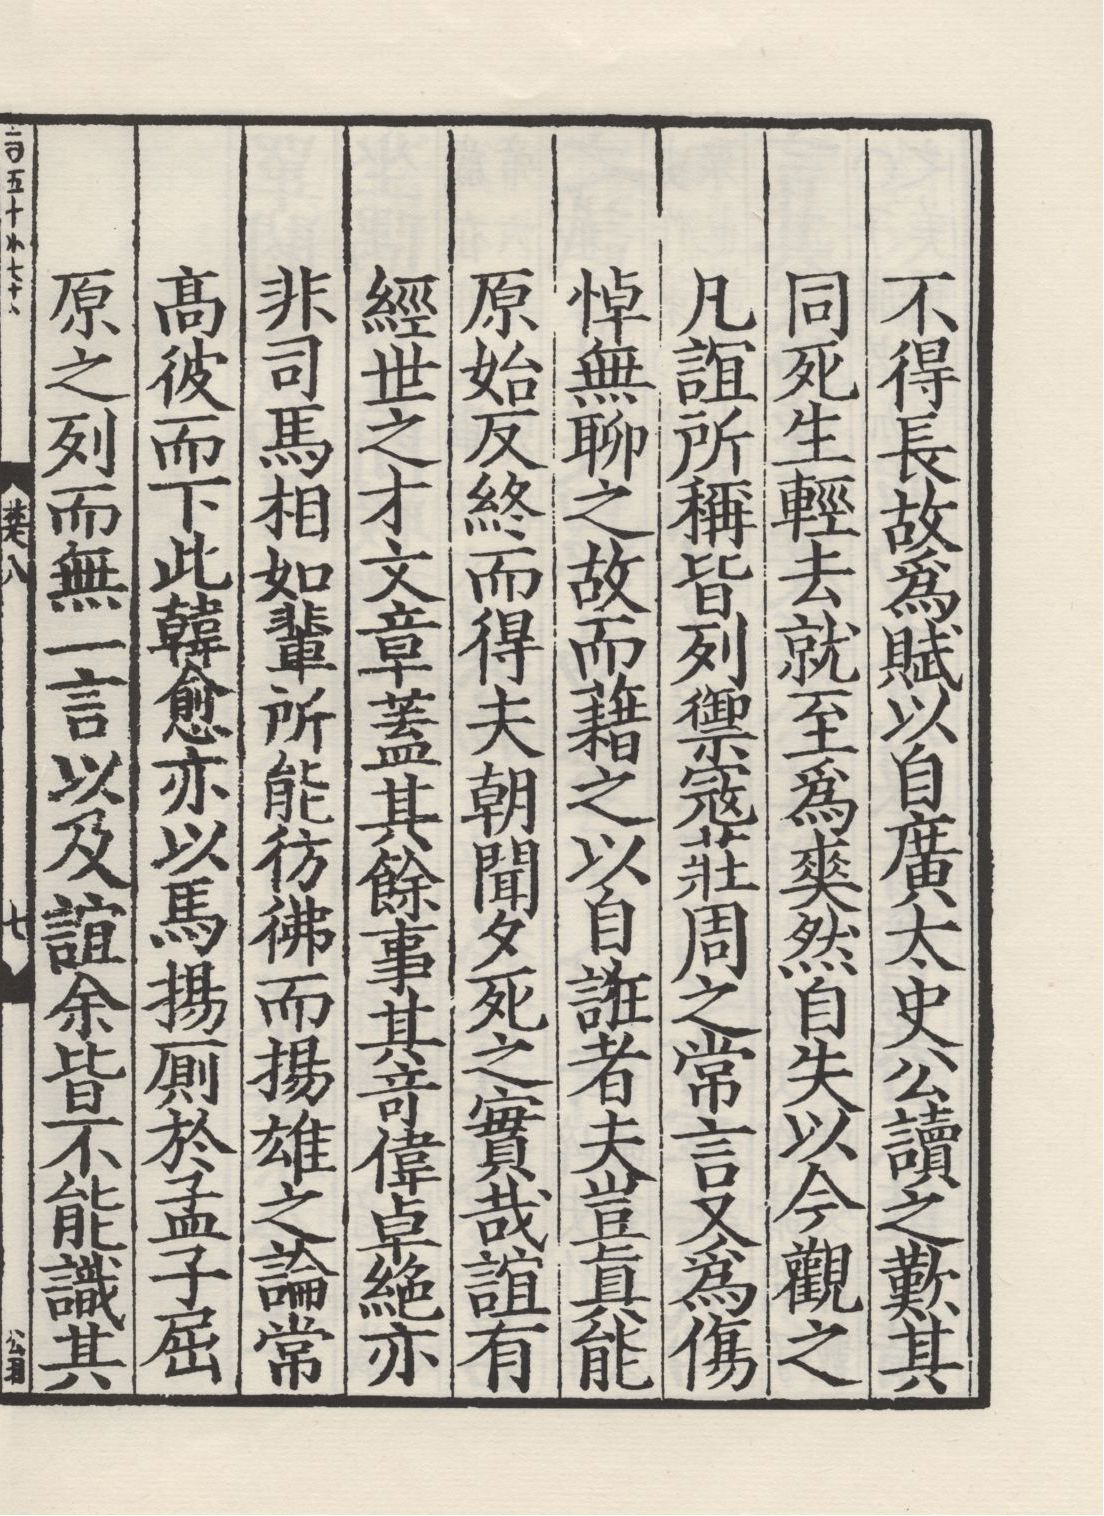 不得長故爲賦以自廣太史公讀之歎其
同死生輕去就至爲爽然自失以今觀之
凡誼所稱皆列禦寇莊周之常言又爲傷
悼無聊之故而藉之以自誑者夫豈真能
原始反終而得夫朝聞夕死之實哉誼有
經世之才文章蓋其餘事其竒偉卓絶亦
非司馬相如輩所能彷彿而揚雄之論常
高彼而下此韓愈亦以馬揚厠於孟子屈
原之列而無一言以及誼余皆不能識其
卷八
七